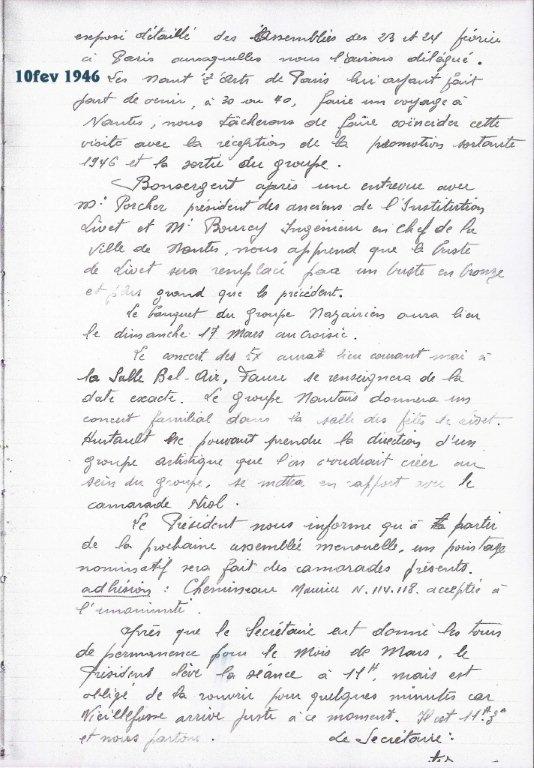 exposé détaillé des Assemblées des 23 et 24 février
à Paris auxquelles nous l'avions délégué.
10fev 1946
Les Nant'z'Arts de Paris lui ayant fait
part de venir, à 30 ou 40, faire un voyage à
Nantes, nous tâcherons de faire coïncider cette
visite avec la réception de la promotion sortante
1946 et la sortie du groupe.
Bonsergent après une entrevue avec
Mr Porcher président des anciens de l'Institution
Livet et Mr Bourcy Ingénieur en chef de la
ville de Nantes, nous apprend que le buste
de Livet sera remplacé par un buste en bronze
et plus grand que le précédent.
Le banquet du Groupe Nazairien aura lieu
le dimanche 17 Mars au Croisic.
Le concert des Ex aurait lieu courant mai à
la Salle Bel-Air, Faure se renseignera de la
date exacte. Le groupe Nantais donnera un
concert familial dans la salle des fêtes de
Hurtault ne pouvant prendre la direction d'un
groupe artistique que l'on voudrait créer au
sein du groupe, se mettra en rapport avec le
camarade Niol.
Le Président nous informe qu'à partir
de la prochaine assemblée mensuelle, un pointage
nominatif sera fait des camarades présents.
adhésion : Chemineau Maurice N. 114.118. acceptée à
l'unanimité.
Après que le Secrétaire eut donné les tours
de permanence pour le Mois de Mars, le
Président lève la séance à 11H, mais est
obligé de la rouvrir pour quelques minutes car
Vieillefosse arrive juste à ce moment. Il est 11H
et nous partons.
Le Secrétaire :